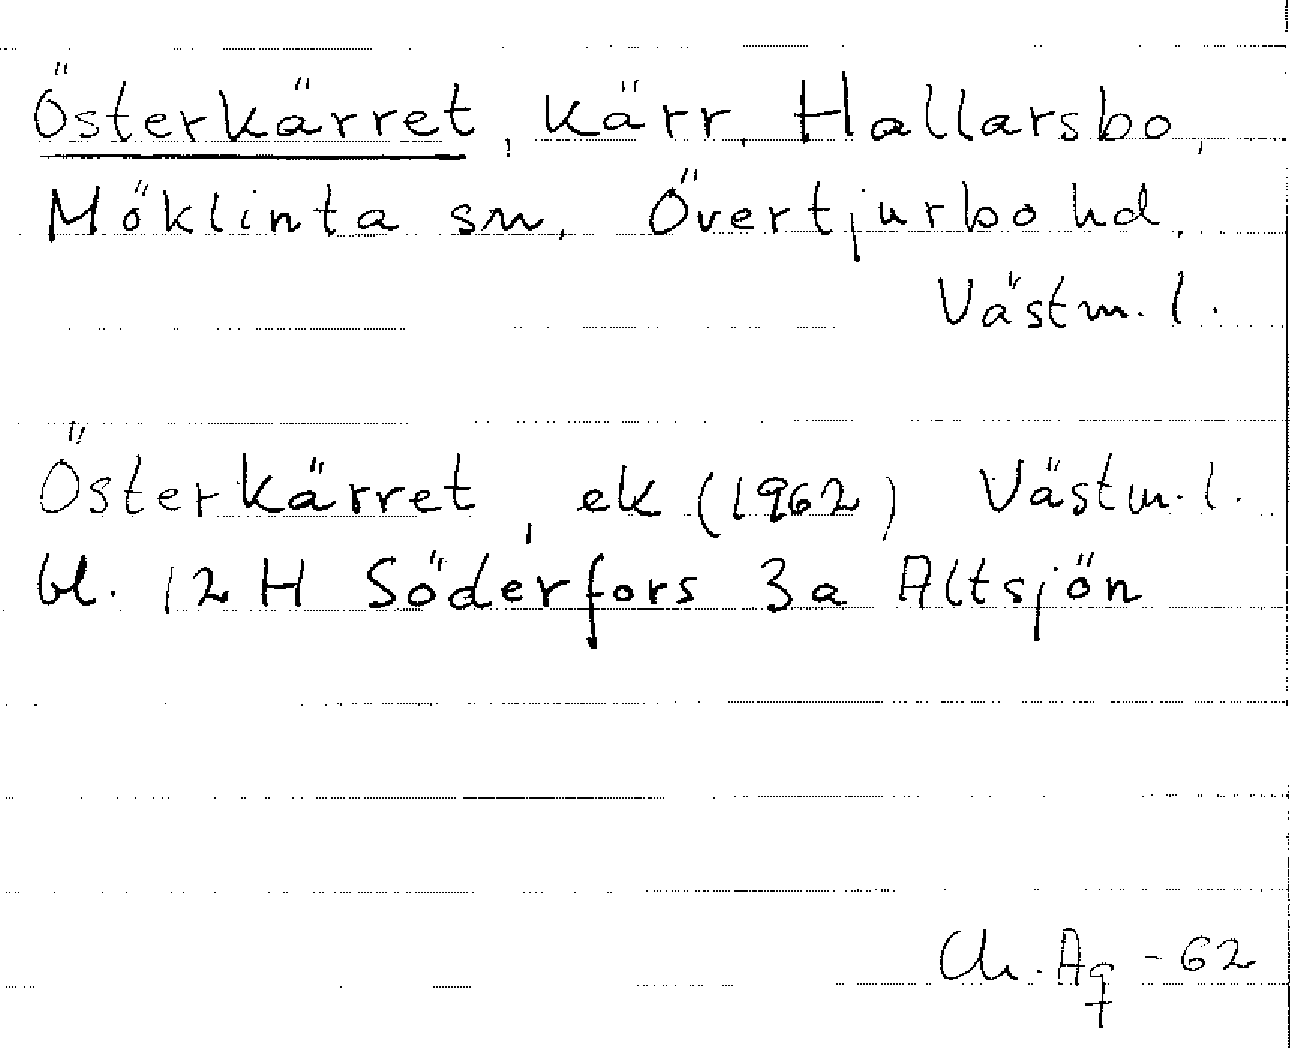 Österkärret, kärr, Hallarsbo,
Möklinta sn, Övertjurbo hd,
Västm. l.
Österkärret, ek (1962) Västm. l.
bl. 12 H Söderfors 3a Altsjön
Ch. Aq - 62